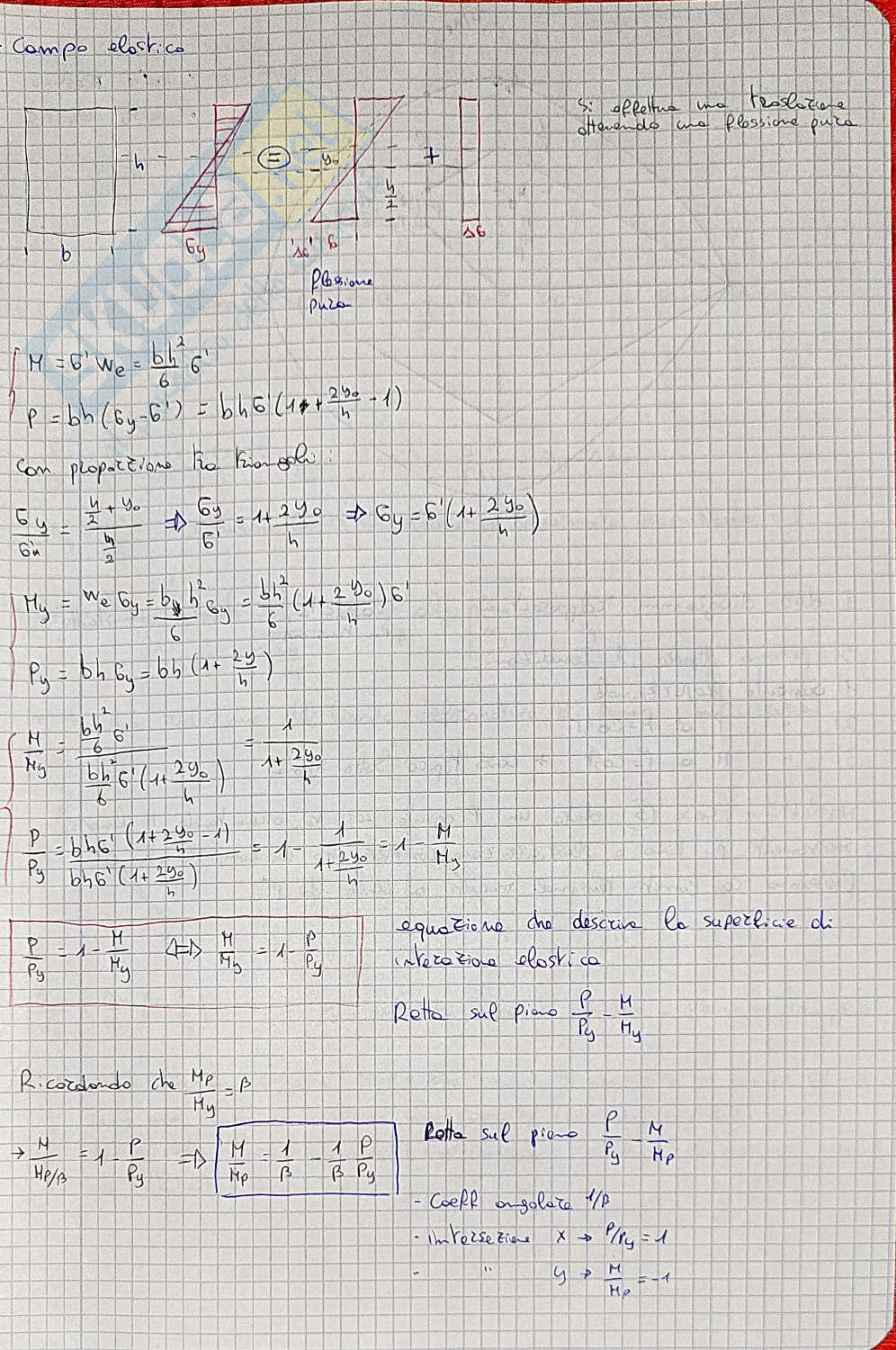 - Campo elastico
Si effettua una traslazione
ottenendo una flessione pura
h
=
y₀
+
h/2
b
σy
Δσ'
σ'
Δσ
flessione
pura
M = σ' We = bh²/6 σ'
P = bh(σy - σ') = bhσ'(1 + 2y₀/h - 1)
Con proporzione tra triangoli:
σy/σ'n = (h/2 + y₀)/(h/2) ⇒ σy/σ' = 1 + 2y₀/h ⇒ σy = σ'(1 + 2y₀/h)
My = We σy = bh²/6 σy = bh²/6 (1 + 2y₀/h)σ'
Py = bhσy = bh(1 + 2y/h)
M/My = (bh²/6 σ')/(bh²/6 σ'(1 + 2y₀/h)) = 1/(1 + 2y₀/h)
P/Py = bhσ'(1 + 2y₀/h - 1)/(bhσ'(1 + 2y₀/h)) = 1 - 1/(1 + 2y₀/h) = 1 - M/My
P/Py = 1 - M/My ⇔ M/My = 1 - P/Py
equazione che descrive la superficie di
interazione elastica
Retta sul piano P/Py - M/My
Ricordando che Mp/My = β
→ M/(Mp/β) = 1 - P/Py ⇒ M/Mp = 1/β - 1/β P/Py
Retta sul piano P/Py - M/Mp
- Coeff angolare 1/β
- intersezione x → P/Py = 1
- " y → M/Mp = -1